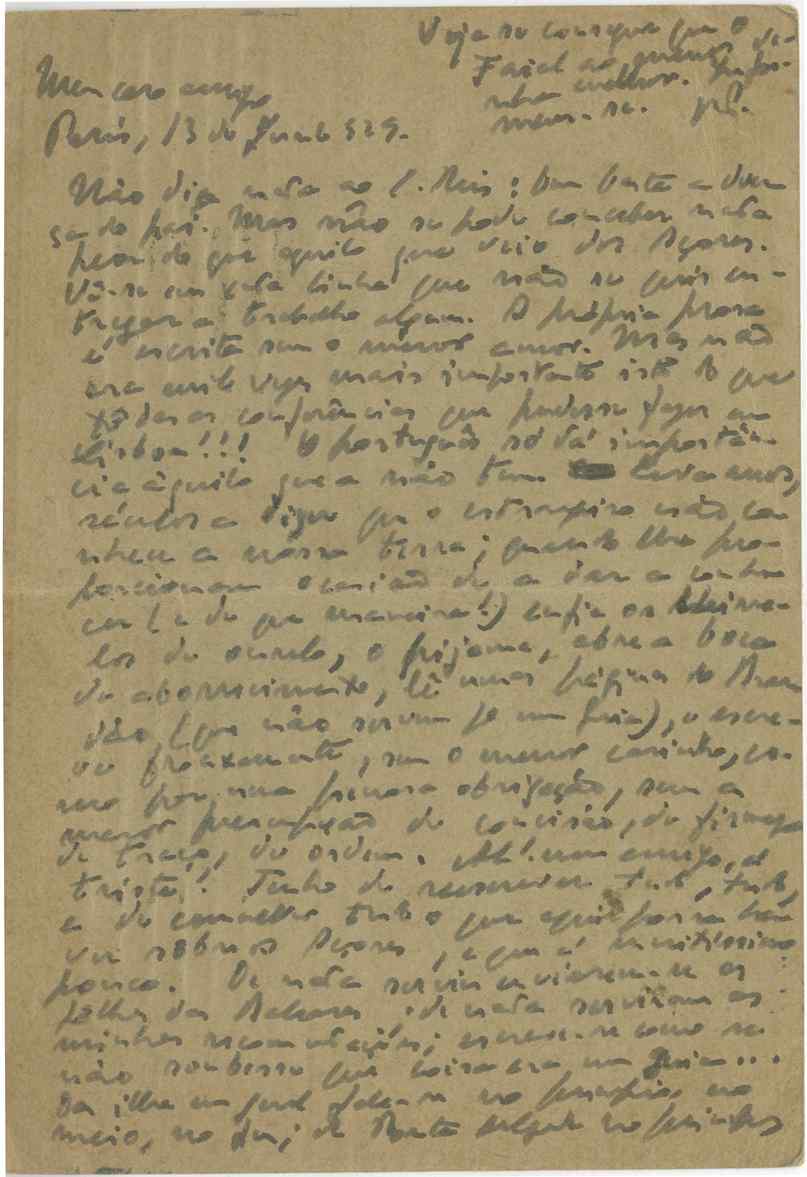 Veja se consegue que o
Faial ao menos ve-
nha melhor. Infor-
mem-se.
Meu caro amigo
Paris, 13 de Junho 929.
Não diga nada ao L. Reis: bem basta a doen-
ça do pai. Mas não se pode conceber nada
peor do que aquilo que veio dos Açores.
Vê-se em cada linha que não se quis en-
tregar a trabalho algum. A própria prosa
é escrita sem o menor amor. Mas não
era mil vezes mais importante isto do que
tôdas as conferências que pudesse fazer em
Lisboa!!! O português só dá importân-
cia àquilo que a não tem. Leva anos,
séculos a dizer que o estrangeiro não co-
nhece a nossa terra; quando lhe pro-
porcionam ocasião de a dar a conhe-
cer (e de que maneira!) enfia os chine-
los de ourelo, o pijama, abre a boca
de aborrecimento, lê umas páginas do Bran-
dão, (que não servem pª um Guia), e escre-
ve frouxamente, sem o menor carinho, co-
mo por uma penosa obrigação, sem a
menor preocupação de concisão, de firmeza
de traço, de ordem. Ah! meu amigo, é
triste! Tenho de reescrever tudo, tudo,
e de
tudo o que aqui possa ha-
ver sôbre os Açores, e que é muitíssimo
pouco. De nada serviu enviarem-se as
folhas das Baleares; de nada serviram as
minhas recomendações; escreve-se como se
não soubesse que coisa era um Guia...
Da ilha em geral fala-se no princípio, no
meio, no fim; de Ponta Delgada no princípio